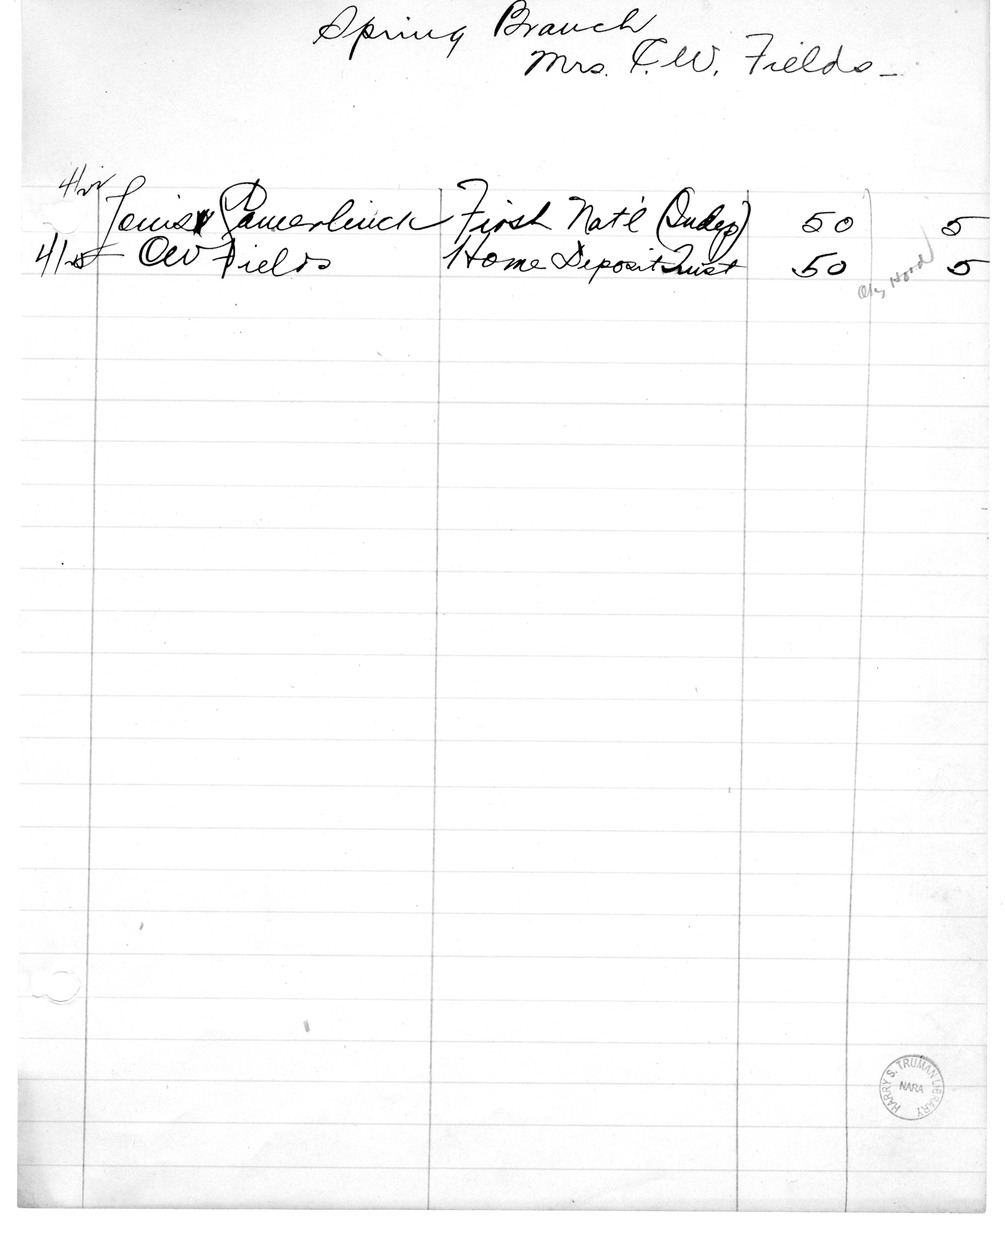 Spring Branch
Mrs. C.W. Fields-
Louis Pamerlinck First Nat'l (Indep) 50 5
CW Fields Home Deposit Trust 50 5
HARRY S. TRUMAN LIBRARY
NARA